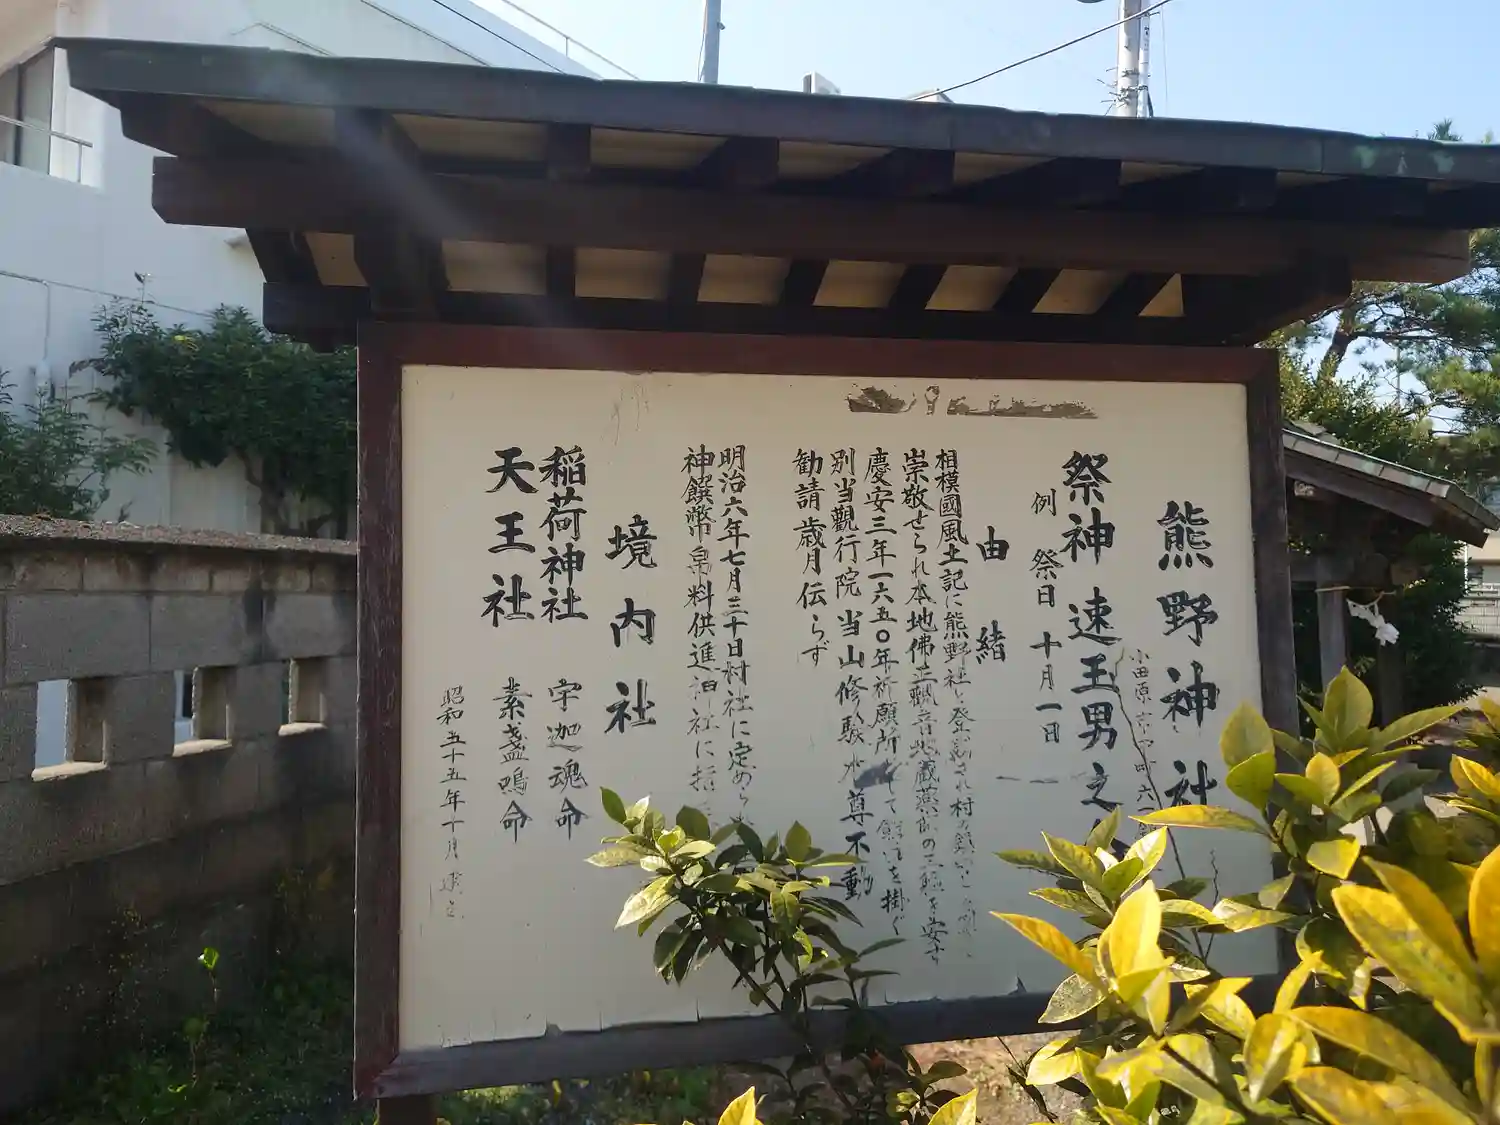 熊野神社
小田原市
祭神 速玉男之
例祭日 十月一日
由緒
相模國風土記に熊野社と登記され村の鎮
崇敬せられ本地佛正観音地蔵薬師の三躯を安す
慶安三年一六五〇年祈願所として を掛ぐ
別当觀行院 当山修験 本尊不動
勧請歳月伝らず
明治六年七月三十日村社に定めら
神饌幣帛料供進神社に指
境内社
稲荷神社 宇迦魂命
天王社 素盞嗚命
昭和五十五年十月建之